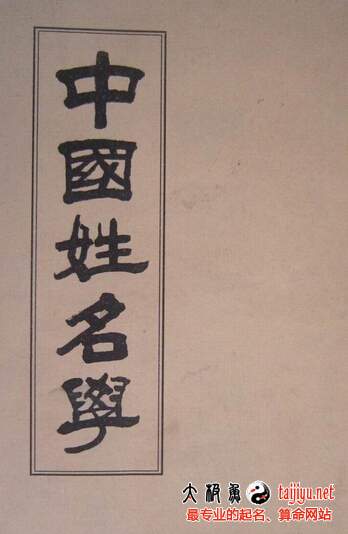 中國姓名學
大极翼 taijiyu.net
最专业的起名、算命网站